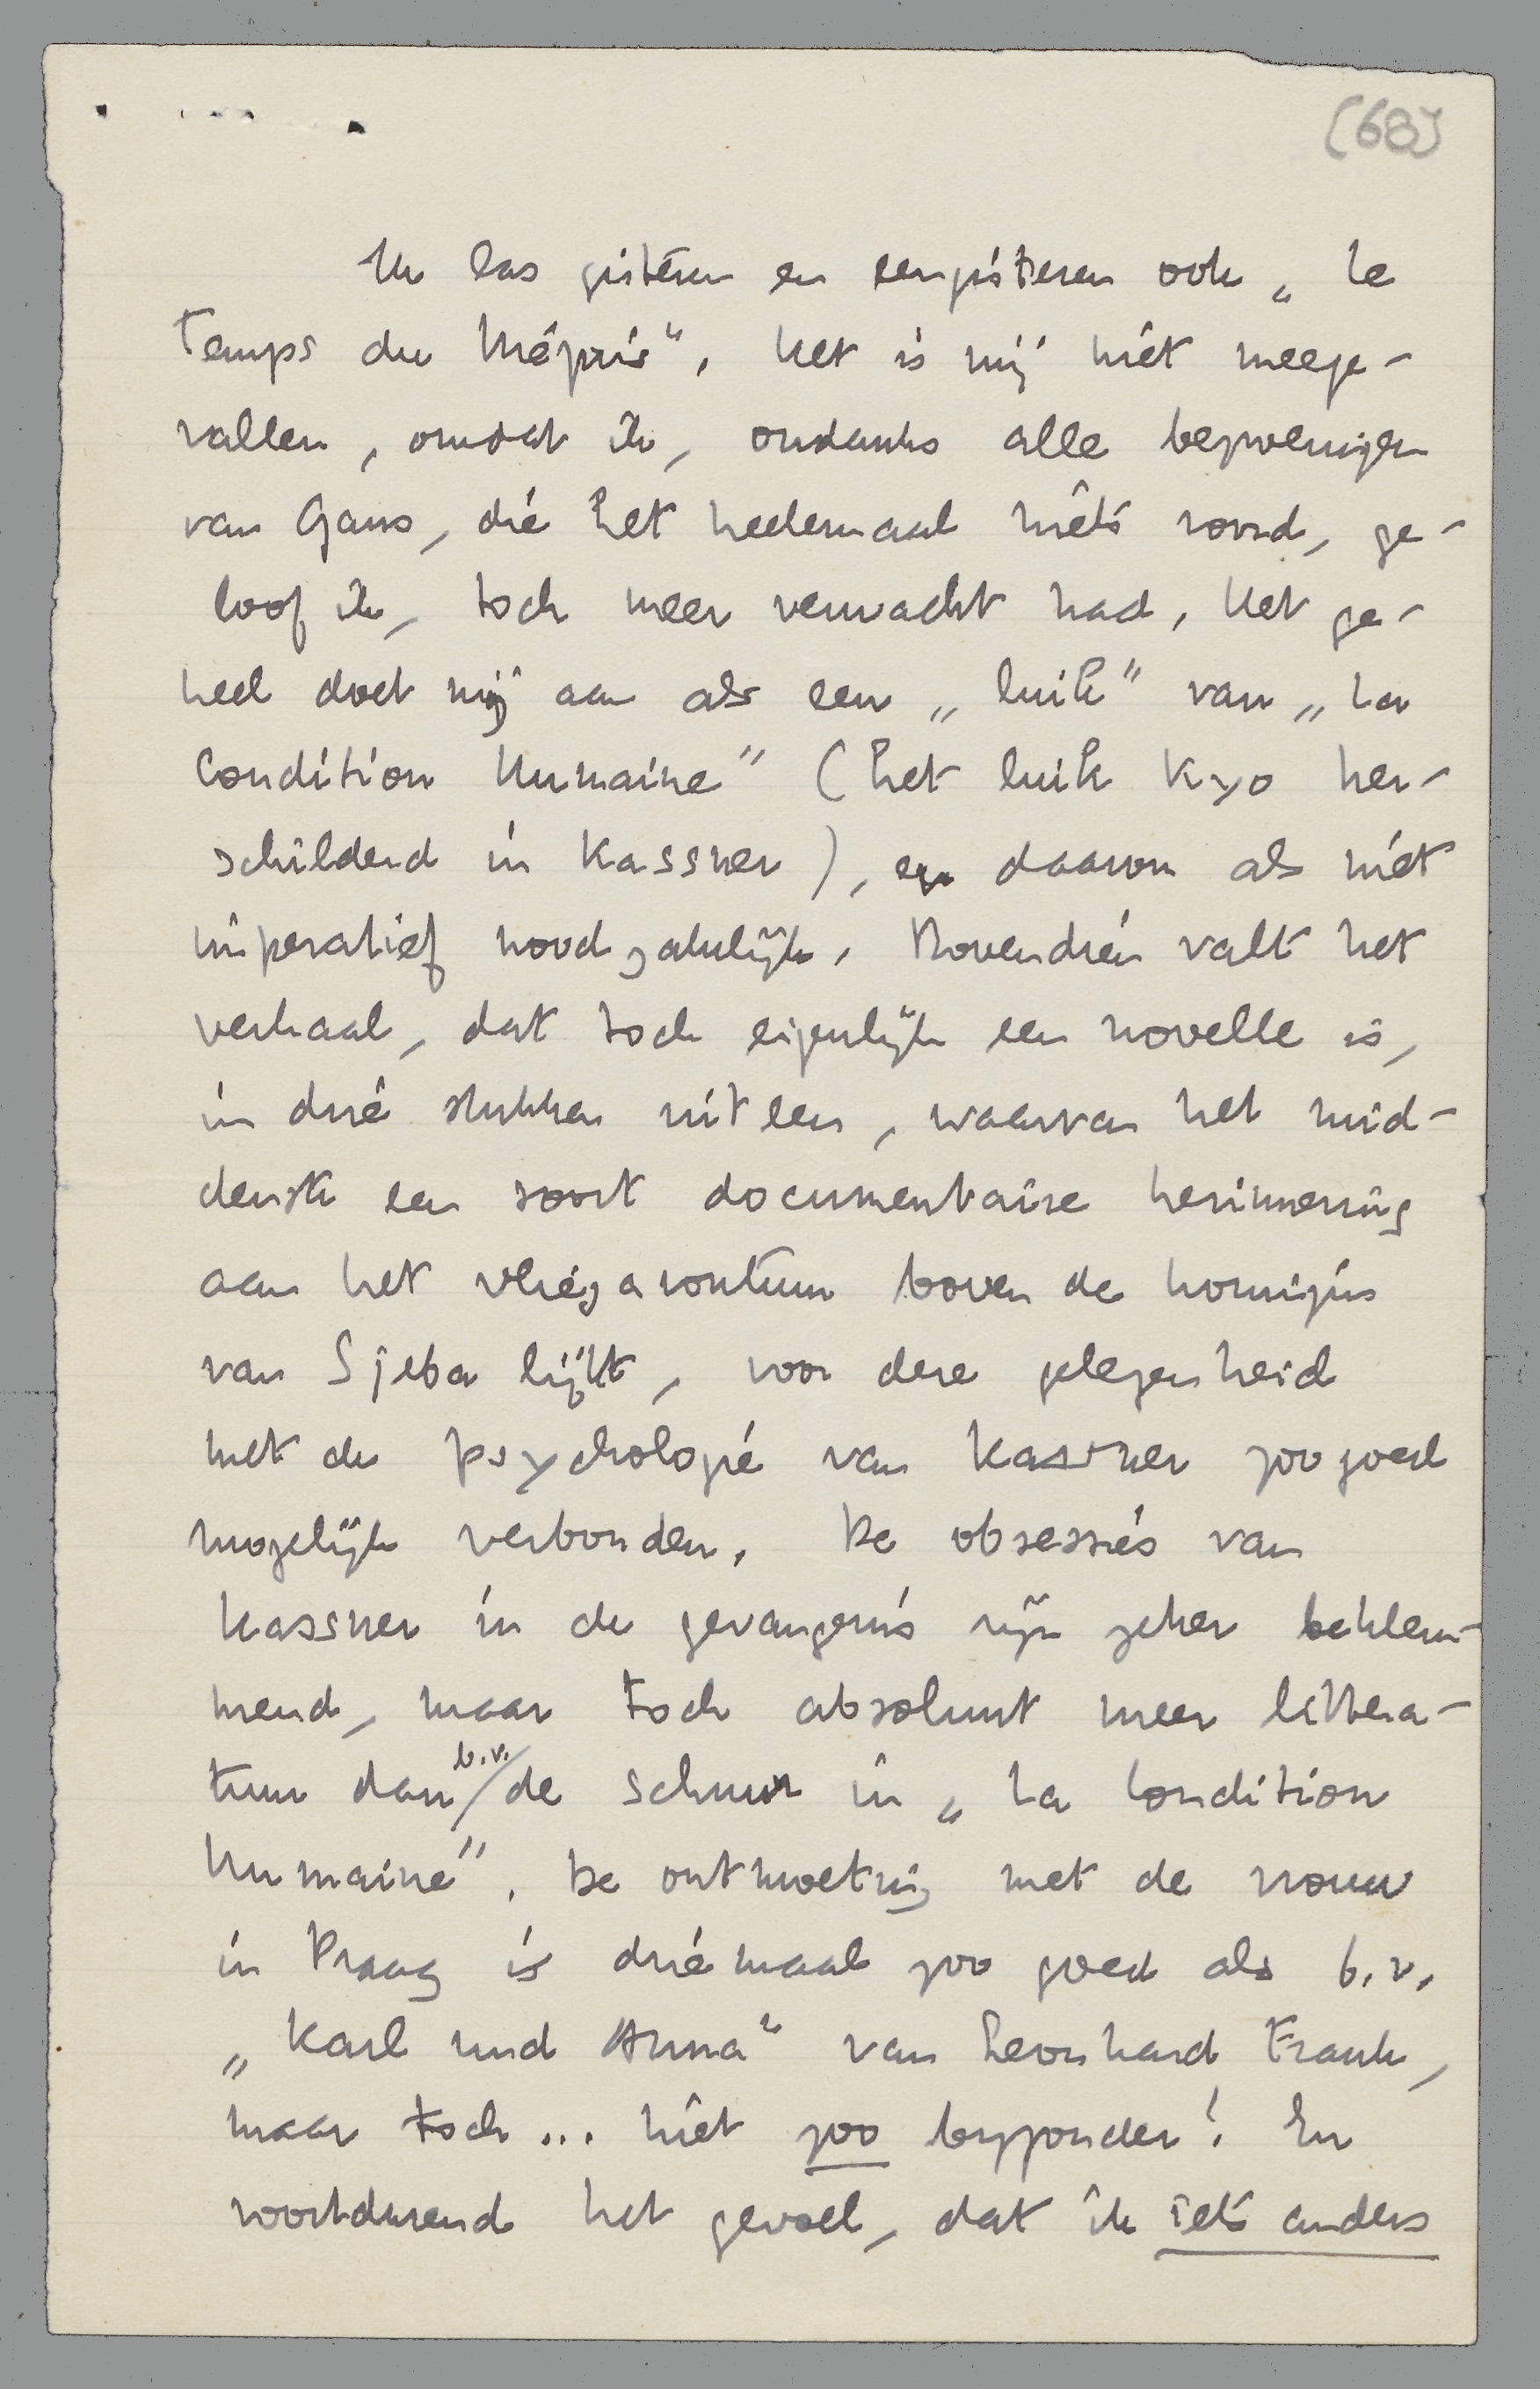 (68)
Ik las gisteren en eergisteren ook „Le
Temps du Mépris”. Het is mij niet meege-
vallen, omdat ik, ondanks alle beweringen
van Gans, die het heelemaal niets vond, ge-
loof ik, toch meer verwacht had. Het ge-
heel doet mij aan als een „luik” van „La
Condition Humaine” (het luik Kyo her-
schilderd in Kassner), en daarom als niet
imperatief noodzakelijk. Bovendien valt het
verhaal, dat toch eigenlijk een novelle is,
in drie stukken uiteen, waarvan het mid-
denstk een soort documentaire herinnering
aan het vliegavontuur boven de koningin
van Sjeba lijkt, voor deze gelegenheid
met de psychologie van Kassner zoo goed
mogelijk verbonden. De obsessies van
Kassner in de gevangenis zijn zeker beklem-
mend, maar toch absoluut meer littera-
tuur dan b.v. de schuur in „La Condition
Humaine”. De ontmoeting met de vrouw
in Praag is driemaal zoo goed als b.v.
„Karl und Anna” van Leonhard Frank,
maar toch... niet zoo bijzonder! En
voortdurend het gevoel, dat ik iets anders